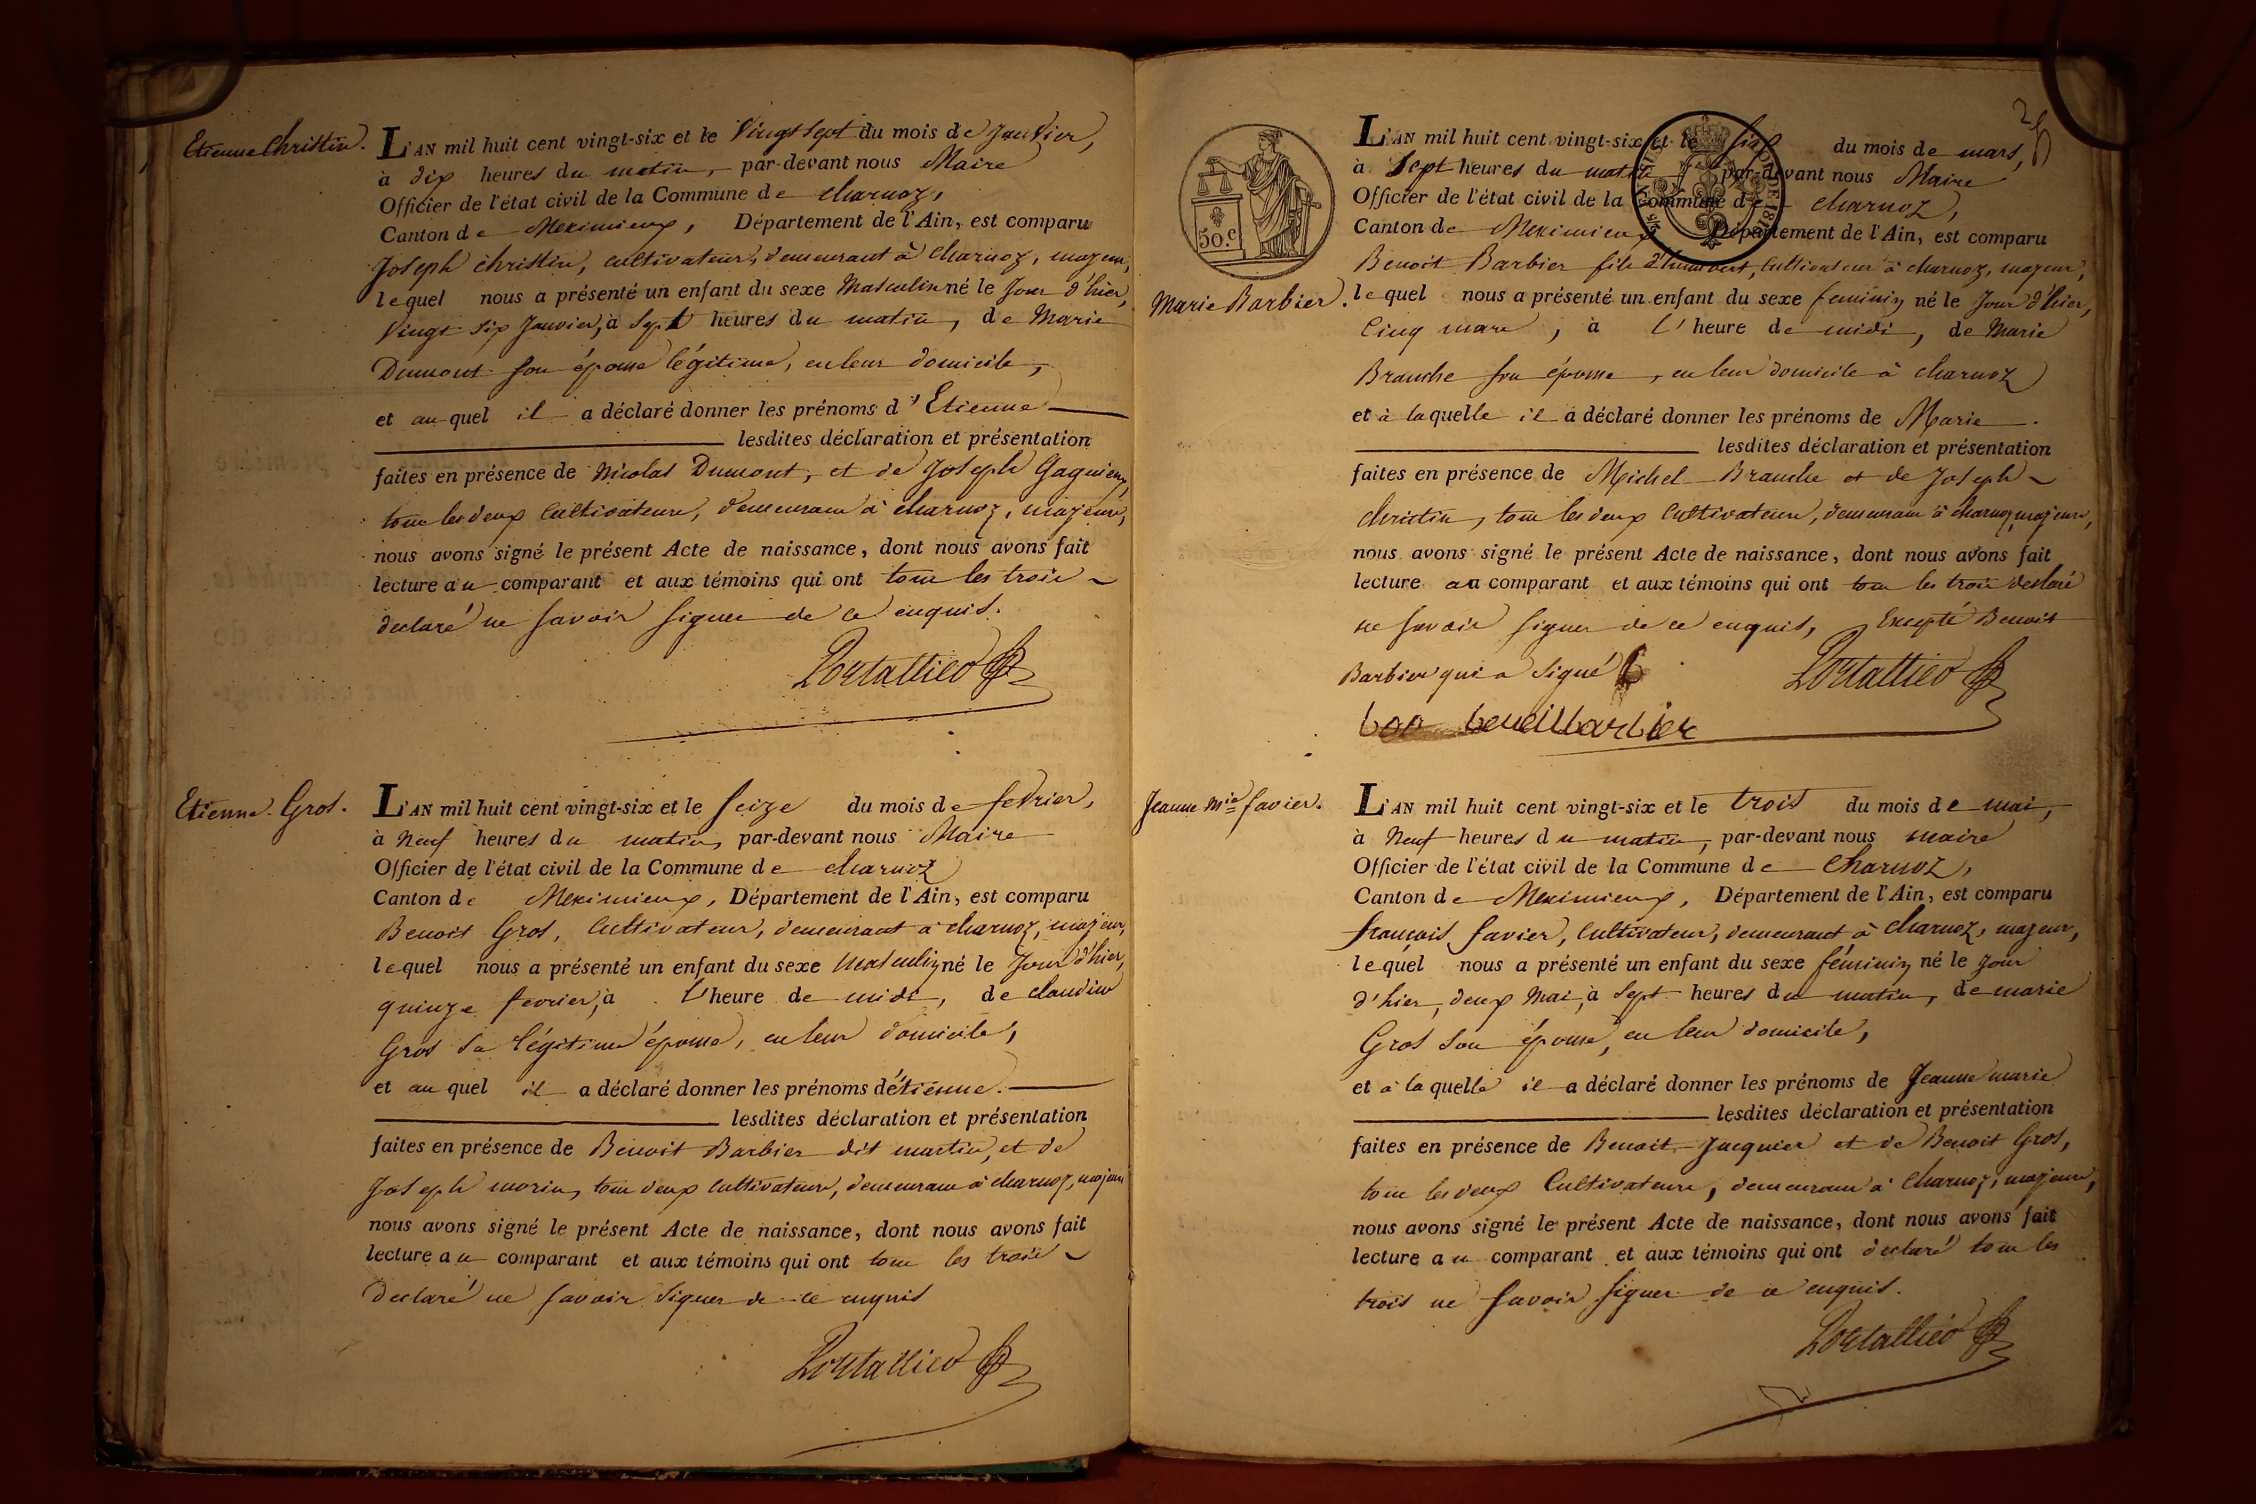 Etienne Christin.
L'AN mil huit cent vingt-six et le Vingt sept du mois de Janvier,
à dix heures du matin, par-devant nous Maire
Officier de l'état civil de la Commune de charnoz,
Canton de Meximieux, Département de l'Ain, est comparu
Joseph christin, cultivateur, demeurant à charnoz, majeur,
lequel nous a présenté un enfant du sexe Masculin né le Jour d'hier,
Vingt six Janvier, à sept heures du matin, de Marie
Dumont son épouse légitime, en leur domicile,
et au quel il a déclaré donner les prénoms d'Etienne
lesdites déclaration et présentation
faites en présence de Nicolas Dumont, et de Joseph
tous les deux cultivateurs, demeurans à charnoz, majeurs,
nous avons signé le présent Acte de naissance, dont nous avons fait
lecture au comparant et aux témoins qui ont tous les trois
declaré ne savoir signer de ce enquis.
Portallier
Etienne Gros.
L'AN mil huit cent vingt-six et le seize du mois de fevrier,
à Neuf heures du matin, par-devant nous Maire
Officier de l'état civil de la Commune de charnoz
Canton de Meximieux, Département de l'Ain, est comparu
Benoit Gros, Cultivateur, demeurant à charnoz, majeur,
lequel nous a présenté un enfant du sexe Masculin né le Jour d'hier,
quinze fevrier, à L'heure de midi, de claudine
Gros sa légitime épouse, en leur domicile,
et au quel il a déclaré donner les prénoms d'étienne.
lesdites déclaration et présentation
faites en présence de Benoit Barbier dit martin, et de
Joseph morin, tous deux cultivateurs, demeurans à charnoz, majeurs
nous avons signé le présent Acte de naissance, dont nous avons fait
lecture au comparant et aux témoins qui ont tous les trois
Declaré ne savoir signer de ce enquis
Portallier
25
50.c
L'AN mil huit cent vingt-six et le six du mois de mars,
à Sept heures du matin par-devant nous Maire
Officier de l'état civil de la Commune de charnoz,
Canton de Meximieux Département de l'Ain, est comparu
Benoit Barbier fils d'humbert, Cultivateur à charnoz, majeur,
Marie Barbier.
lequel nous a présenté un enfant du sexe feminin né le Jour d'hier,
Cinq mars, à l'heure de midi, de Marie
Branche son épouse, en leur domicile à charnoz
et à laquelle il a déclaré donner les prénoms de Marie.
lesdites déclaration et présentation
faites en présence de Michel Branche et de Joseph
christin, tous les deux Cultivateurs, demeurans à charnoz, majeurs,
nous avons signé le présent Acte de naissance, dont nous avons fait
lecture au comparant et aux témoins qui ont tous les trois declaré
ne savoir signer de ce enquis, Excepté Benoit
Barbier qui a signé
Portallier
Jeanne Mie favier.
L'AN mil huit cent vingt-six et le trois du mois de mai,
à Neuf heures du matin, par-devant nous maire
Officier de l'état civil de la Commune de Charnoz,
Canton de Meximieux, Département de l'Ain, est comparu
françois favier, Cultivateur, demeurant à Charnoz, majeur,
lequel nous a présenté un enfant du sexe féminin né le jour
d'hier, deux Mai, à Sept heures du matin, de marie
Gros son épouse, en leur domicile,
et à la quelle il a déclaré donner les prénoms de Jeanne marie
lesdites déclaration et présentation
faites en présence de Benoit Jacquier et de Benoit Gros,
tous les deux Cultivateurs, demeurans à Charnoz, majeurs,
nous avons signé le présent Acte de naissance, dont nous avons fait
lecture au comparant et aux témoins qui ont declaré tous les
trois ne savoir signer de ce enquis.
Portallier